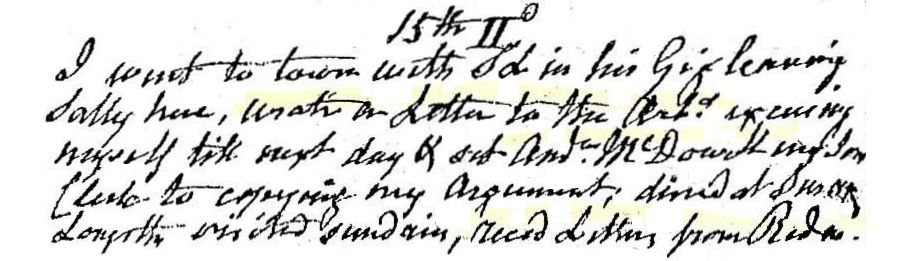 15th II°
I went to town with Sd in his Gig leaving
Sally here, wrote a Letter to the Arbs. excusing
myself till next day & set Andw. McDowell my Son
Clerk to copying my Argument, dined at Susan
visited sundries, recd Letters from